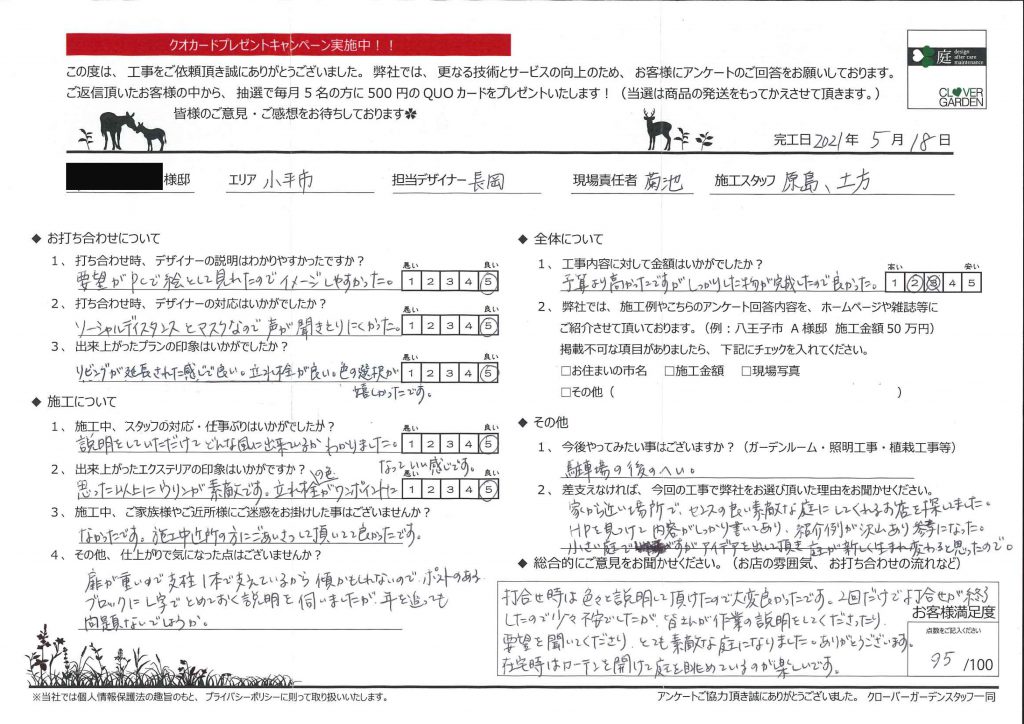 クオカードプレゼントキャンペーン実施中！！
この度は、工事をご依頼頂き誠にありがとうございました。弊社では、更なる技術とサービスの向上のため、お客様にアンケートのご回答をお願いしております。
ご返信頂いたお客様の中から、抽選で毎月５名の方に500円のQUOカードをプレゼントいたします！（当選は商品の発送をもってかえさせて頂きます。）
皆様のご意見・ご感想をお待ちしております
庭 design after care maintenance
CLOVER GARDEN
完工日 2021年 5月 18日
様邸 エリア 小平市 担当デザイナー 長岡 現場責任者 菊池 施工スタッフ 原島、土方
◆ お打ち合わせについて
1、打ち合わせ時、デザイナーの説明はわかりやすかったですか？
悪い 良い
要望がPCで絵として見れたのでイメージしやすかった。 1 2 3 4 5
2、打ち合わせ時、デザイナーの対応はいかがでしたか？
悪い 良い
ソーシャルディスタンスとマスクなので声が聞きとりにくかった。 1 2 3 4 5
3、出来上がったプランの印象はいかがでしたか？
悪い 良い
リビングが延長された感じで良い。立水栓が良い。色の選択が 1 2 3 4 5
嬉しかったです。
◆ 施工について
1、施工中、スタッフの対応・仕事ぶりはいかがでしたか？
悪い 良い
説明をしていただけてどんな風に出来ているかわかりました。 1 2 3 4 5
2、出来上がったエクステリアの印象はいかがですか？
悪い 良い
思った以上にウリンが素敵です。立水栓の色がワンポイントに 1 2 3 4 5
なっていい感じです。
3、施工中、ご家族様やご近所様にご迷惑をお掛けした事はございませんか？
なかったです。施工中近所の方にごあいさつして頂いてて良かったです。
4、その他、仕上がりで気になった点はございませんか？
扉が重いので支柱1本で支えているから傾かもしれないので、ポストのある
ブロックにL字でとめておく説明を伺いましたが、年を追っても
問題ないでしょうか。
◆ 全体について
1、工事内容に対して金額はいかがでしたか？
高い 安い
予算より高かったですがしっかりした物が完成したので良かった。 1 2 3 4 5
2、弊社では、施工例やこちらのアンケート回答内容を、ホームページや雑誌等に
ご紹介させて頂いております。（例：八王子市 A様邸 施工金額50万円）
掲載不可な項目がありましたら、下記にチェックを入れてください。
□お住まいの市名 □施工金額 □現場写真
□その他（ ）
◆ その他
1、今後やってみたい事はございますか？（ガーデンルーム・照明工事・植栽工事等）
駐車場の後のへい。
2、差支えなければ、今回の工事で弊社をお選び頂いた理由をお聞かせください。
家から近い場所で、センスの良い素敵な庭にしてくれるお店を探しました。
HPを見つけて内容がしっかり書いてあり、紹介例が沢山あり参考になった。
小さい庭ですがアイデアを出して頂き庭が新しく生まれ変わると思ったので。
◆ 総合的にご意見をお聞かせください。（お店の雰囲気、お打ち合わせの流れなど）
打合せ時は色々と説明して頂けたので大変良かったです。2回だけで打合せが終了
したので少々不安でしたが、皆さんが作業の説明をしてくださったり、
要望を聞いてくださり、とても素敵な庭になりました。ありがとうございます。
在宅時はカーテンを開けて庭を眺めているのが楽しいです。
お客様満足度
点数をご記入ください
95 /100
※当社では個人情報保護法の趣旨のもと、プライバシーポリシーに則って取り扱いいたします。
アンケートご協力頂き誠にありがとうございました。クローバーガーデンスタッフ一同